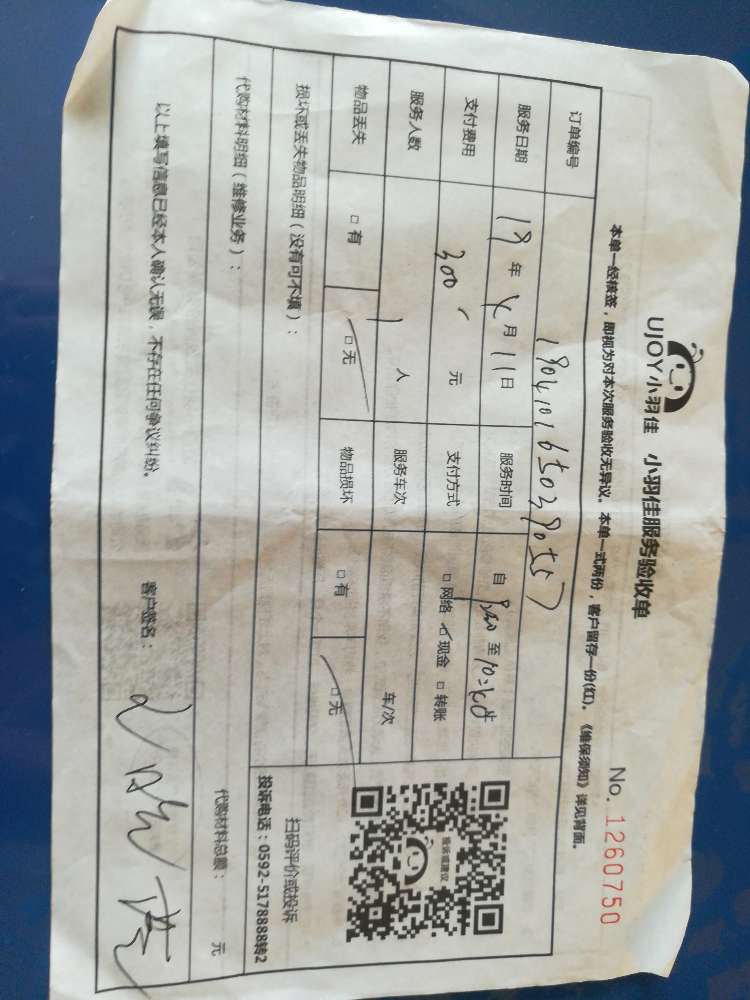 UJOY小羽佳 小羽佳服务验收单
No. 1260750
本单一经核签，即视为对本次服务验收无异议。本单一式两份，客户留存一份(红)。《维保须知》详见背面。
订单编号
服务日期 年 月 11日 服务时间 自 至
支付费用 300 元 支付方式 □网络 现金 □转账
服务人数 1 人 服务车次 车/次
物品丢失 □有 □无 物品损坏 □有 □无
投诉建议
扫码评价或投诉
投诉电话：0592-5178888转2
损坏或丢失物品明细（没有可不填）：
代购材料明细（维修业务）： 代购材料总额： 元
以上填写信息已经本人确认无误，不存在任何争议纠纷。 客户签名：